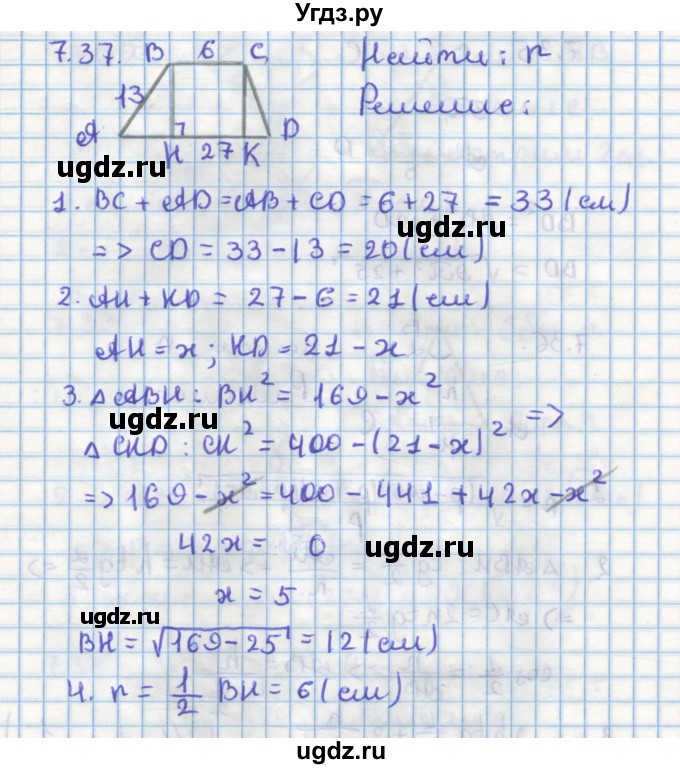 Угдз.ру
7.37. B 6 C Найти: r
13 Решение:
A H 27 K D
ugdz.ru
1. BC + AD = AB + CD = 6 + 27 = 33 (см)
=> CD = 33 - 13 = 20 (см)
ugdz.ru
2. AH + KD = 27 - 6 = 21 (см)
AH = x; KD = 21 - x
3. △ABH: BH² = 169 - x²
=>
ugdz.ru
△CKD: CK² = 400 - (21 - x)²
=> 169 - x² = 400 - 441 + 42x - x²
42x = 0
ugdz.ru
x = 5
ugdz.ru
BH = √169 - 25 = 12 (см)
4. r = 1/2 BH = 6 (см)
ugdz.ru